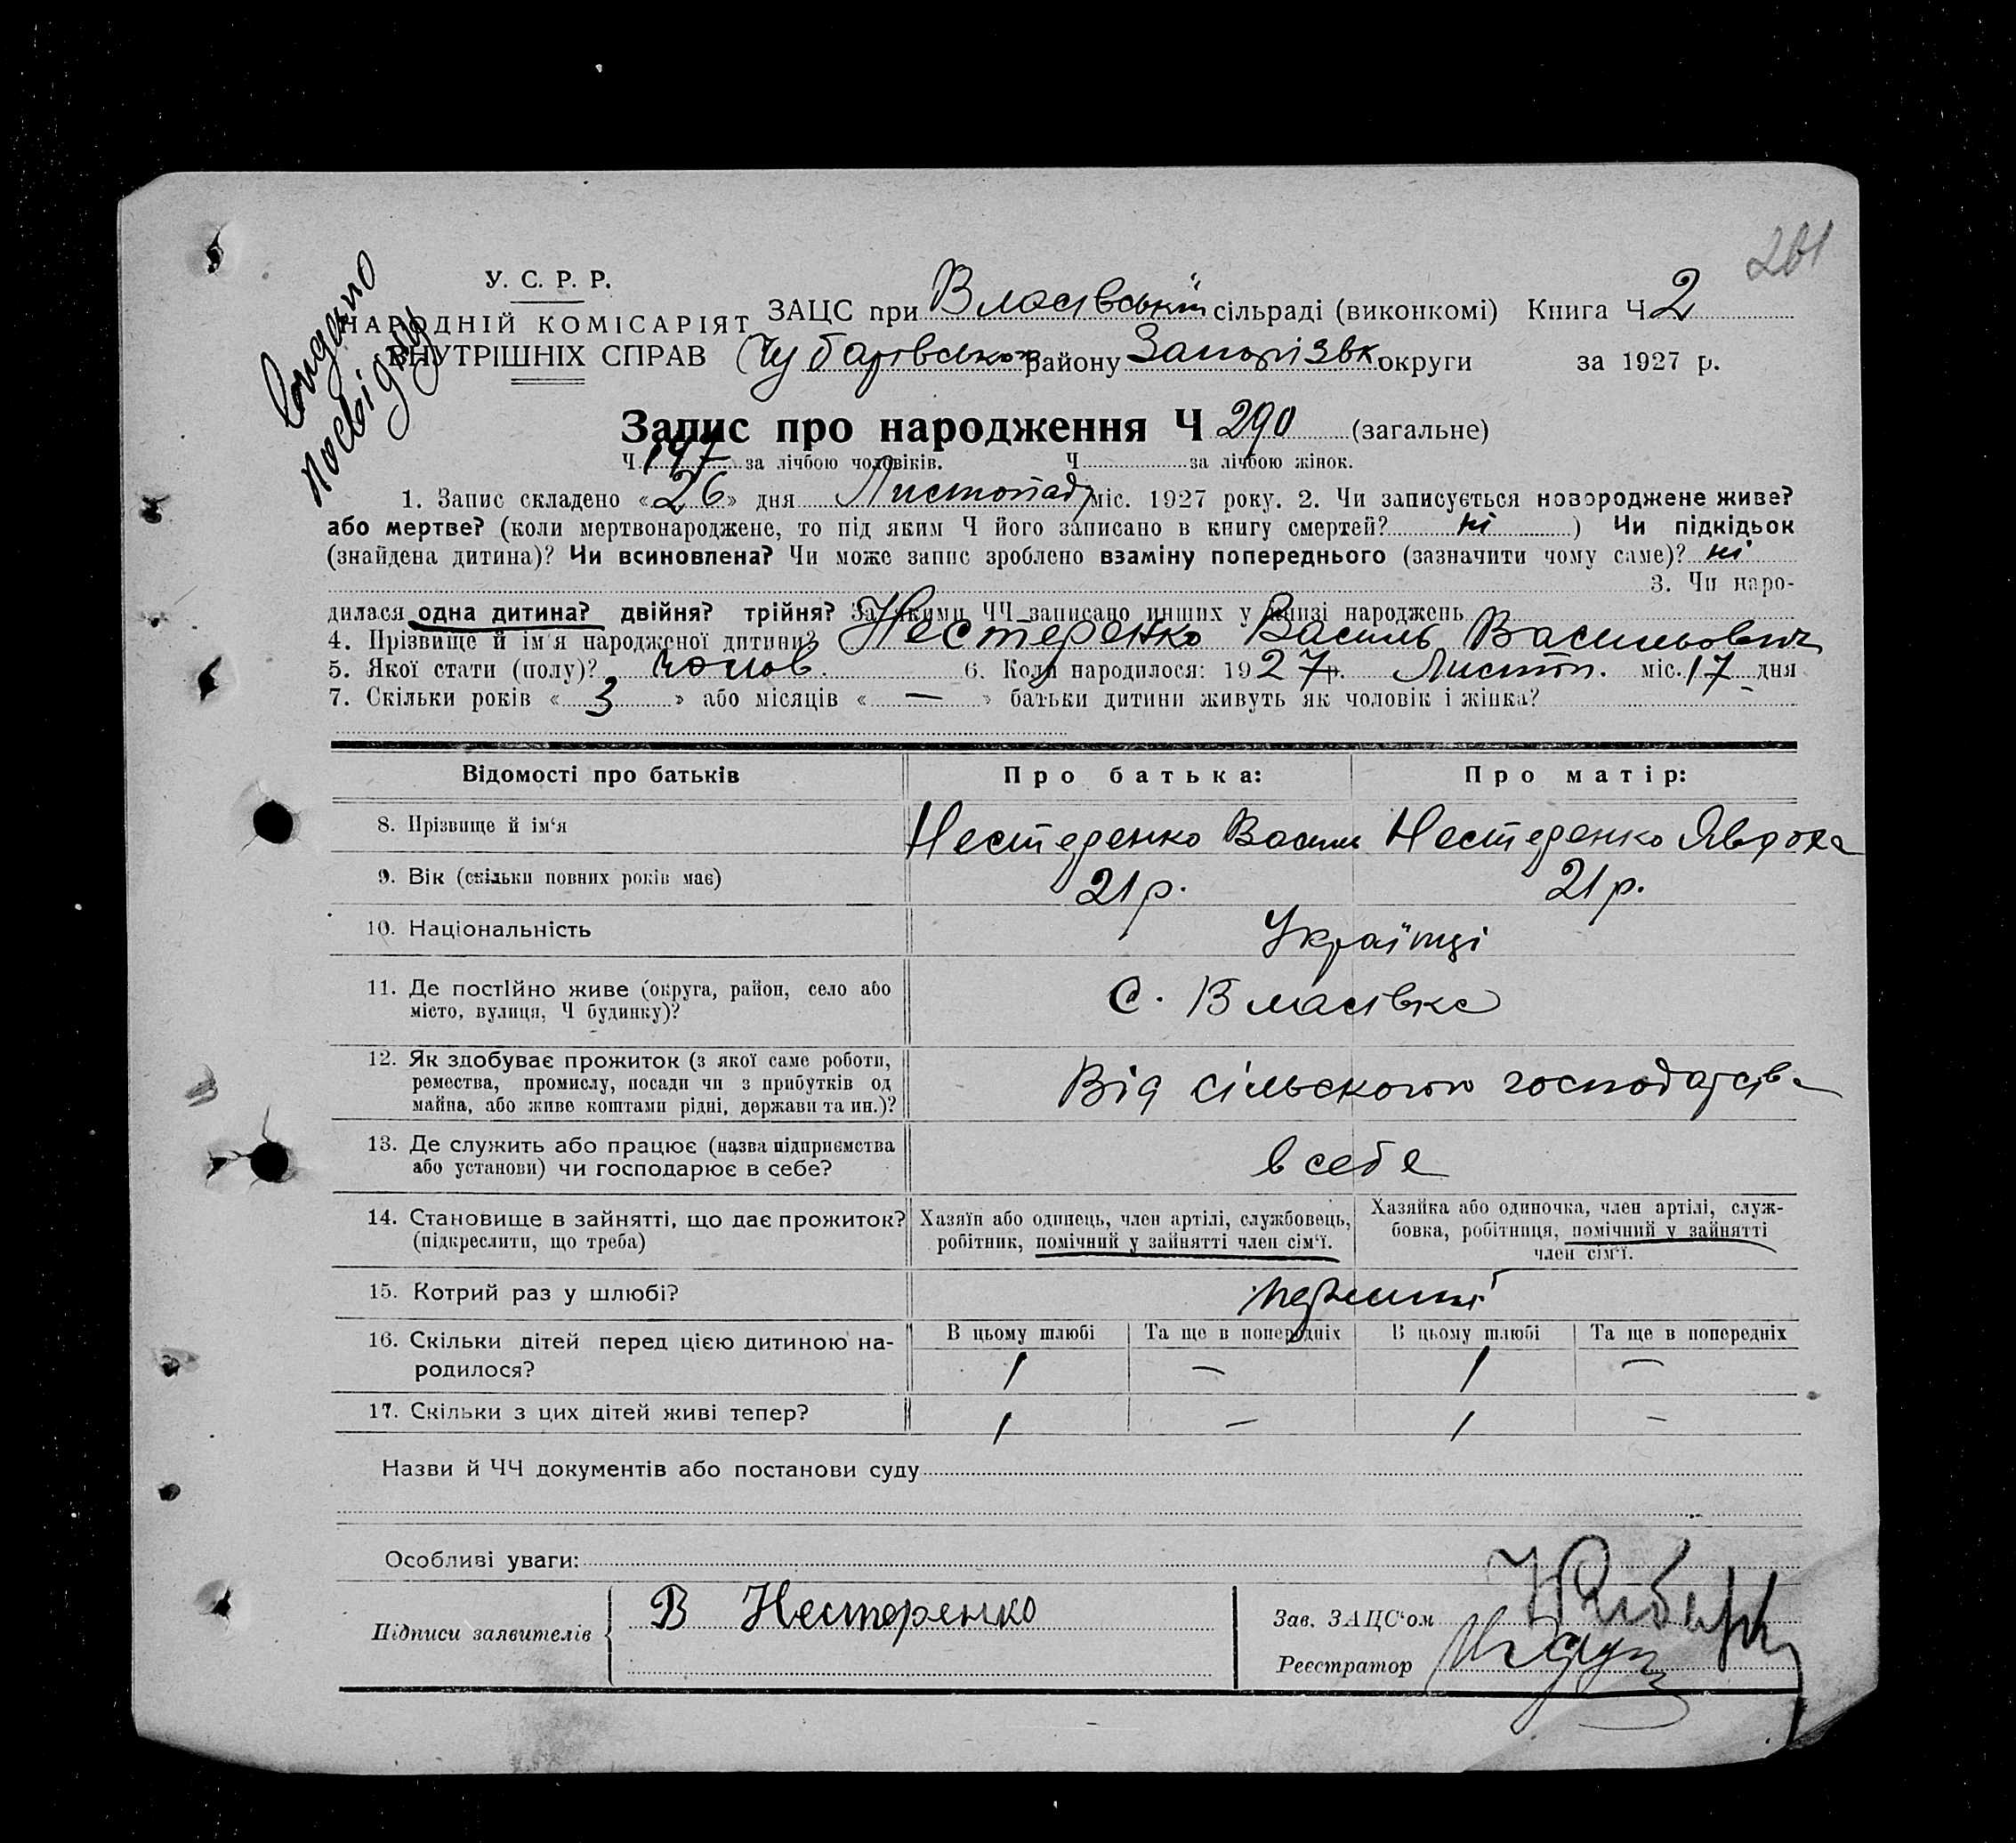 201
У. С. Р. Р.
НАРОДНІЙ КОМІСАРІЯТ
ВНУТРІШНІХ СПРАВ
посвідку
ЗАЦС при Власівській сільраді (виконкомі) Книга Ч 2
Чубарівськог району Запорізьк округи за 1927 р.
Запис про народження Ч 290 (загальне)
Ч 147 за лічбою чоловіків. Ч за лічбою жінок.
1. Запис складено «26» дня Листопаду міс. 1927 року. 2. Чи записується новороджене живе?
або мертве? (коли мертвонароджене, то під яким Ч його записано в книгу смертей? ні ) Чи підкідьок
(знайдена дитина)? Чи всиновлена? Чи може запис зроблено взаміну попереднього (зазначити чому саме)? ні
3. Чи наро-
дилася одна дитина? двійня? трійня? За якими ЧЧ записано инших у книзі народжень
4. Прізвище й ім'я народженої дитини? Нестеренко Василь Васильович
5. Якої стати (полу)? чолов. 6. Коли народилося: 1927 р. Листоп. міс. 17 дня
7. Скільки років « 3 » або місяців « — » батьки дитини живуть як чоловік і жінка?
Відомості про батьків Про батька: Про матір:
8. Прізвище й ім'я Нестеренко Василь Нестеренко Явдоха
9. Вік (скільки повних років має) 21 р. 21 р.
10. Національність Українці
11. Де постійно живе (округа, район, село або
місто, вулиця, Ч будинку)? С. Власівка
12. Як здобуває прожиток (з якої саме роботи,
ремества, промислу, посади чи з прибутків од
майна, або живе коштами рідні, держави та ин.)? Від сільского господарства
13. Де служить або працює (назва підприємства
або установи) чи господарює в себе? в себе
14. Становище в зайнятті, що дає прожиток?
(підкреслити, що треба)
Хазяїн або одинець, член артілі, службовець,
робітник, помічний у зайнятті член сім'ї.
Хазяйка або одиночка, член артілі, служ-
бовка, робітниця, помічний у зайнятті
член сім'ї.
15. Котрий раз у шлюбі? перший
16. Скільки дітей перед цією дитиною на-
родилося?
В цьому шлюбі Та ще в попередніх В цьому шлюбі Та ще в попередніх
1 — 1 —
17. Скільки з цих дітей живі тепер? 1 — 1 —
Назви й ЧЧ документів або постанови суду
Особливі уваги:
Підписи заявителів В Нестеренко
Зав. ЗАЦС'ом
Реєстратор